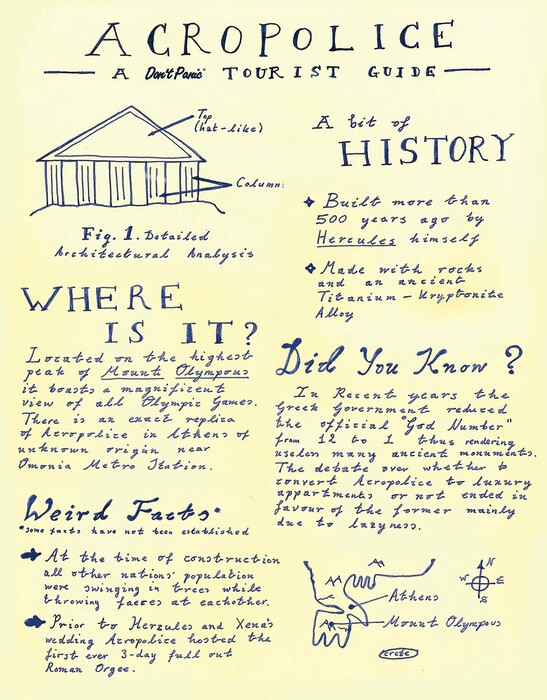 ACROPOLICE
A Don't Panic TOURIST GUIDE
Top
(hat-like)
Column:
Fig. 1. Detailed
Architectural Analysis
A bit of
HISTORY
Built more than
500 years ago by
Hercules himself
Made with rocks
and an ancient
Titanium - Kryptonite
Alloy
WHERE
IS IT?
Located on the highest
peak of Mount Olympous
it boasts a magnificent
view of all Olympic Games.
There is an exact replica
of Acropolice in Athens of
unknown origin near
Omonia Metro Station.
Did You Know?
In Recent years the
Greek Government reduced
the official "God Number"
from 12 to 1 thus rendering
useless many ancient monuments.
The debate over whether to
convert Acropolice to luxury
appartments or not ended in
favour of the former mainly
due to lazyness.
Weird Facts*
*some facts have not been established
At the time of construction
all other nations' population
were swinging in trees while
throwing faeces at eachother.
Prior to Herzules and Xena's
wedding Acropolice hosted the
first ever 3-day full out
Roman Orgee.
N
W E
S
Athens
Mount Olympous
crete